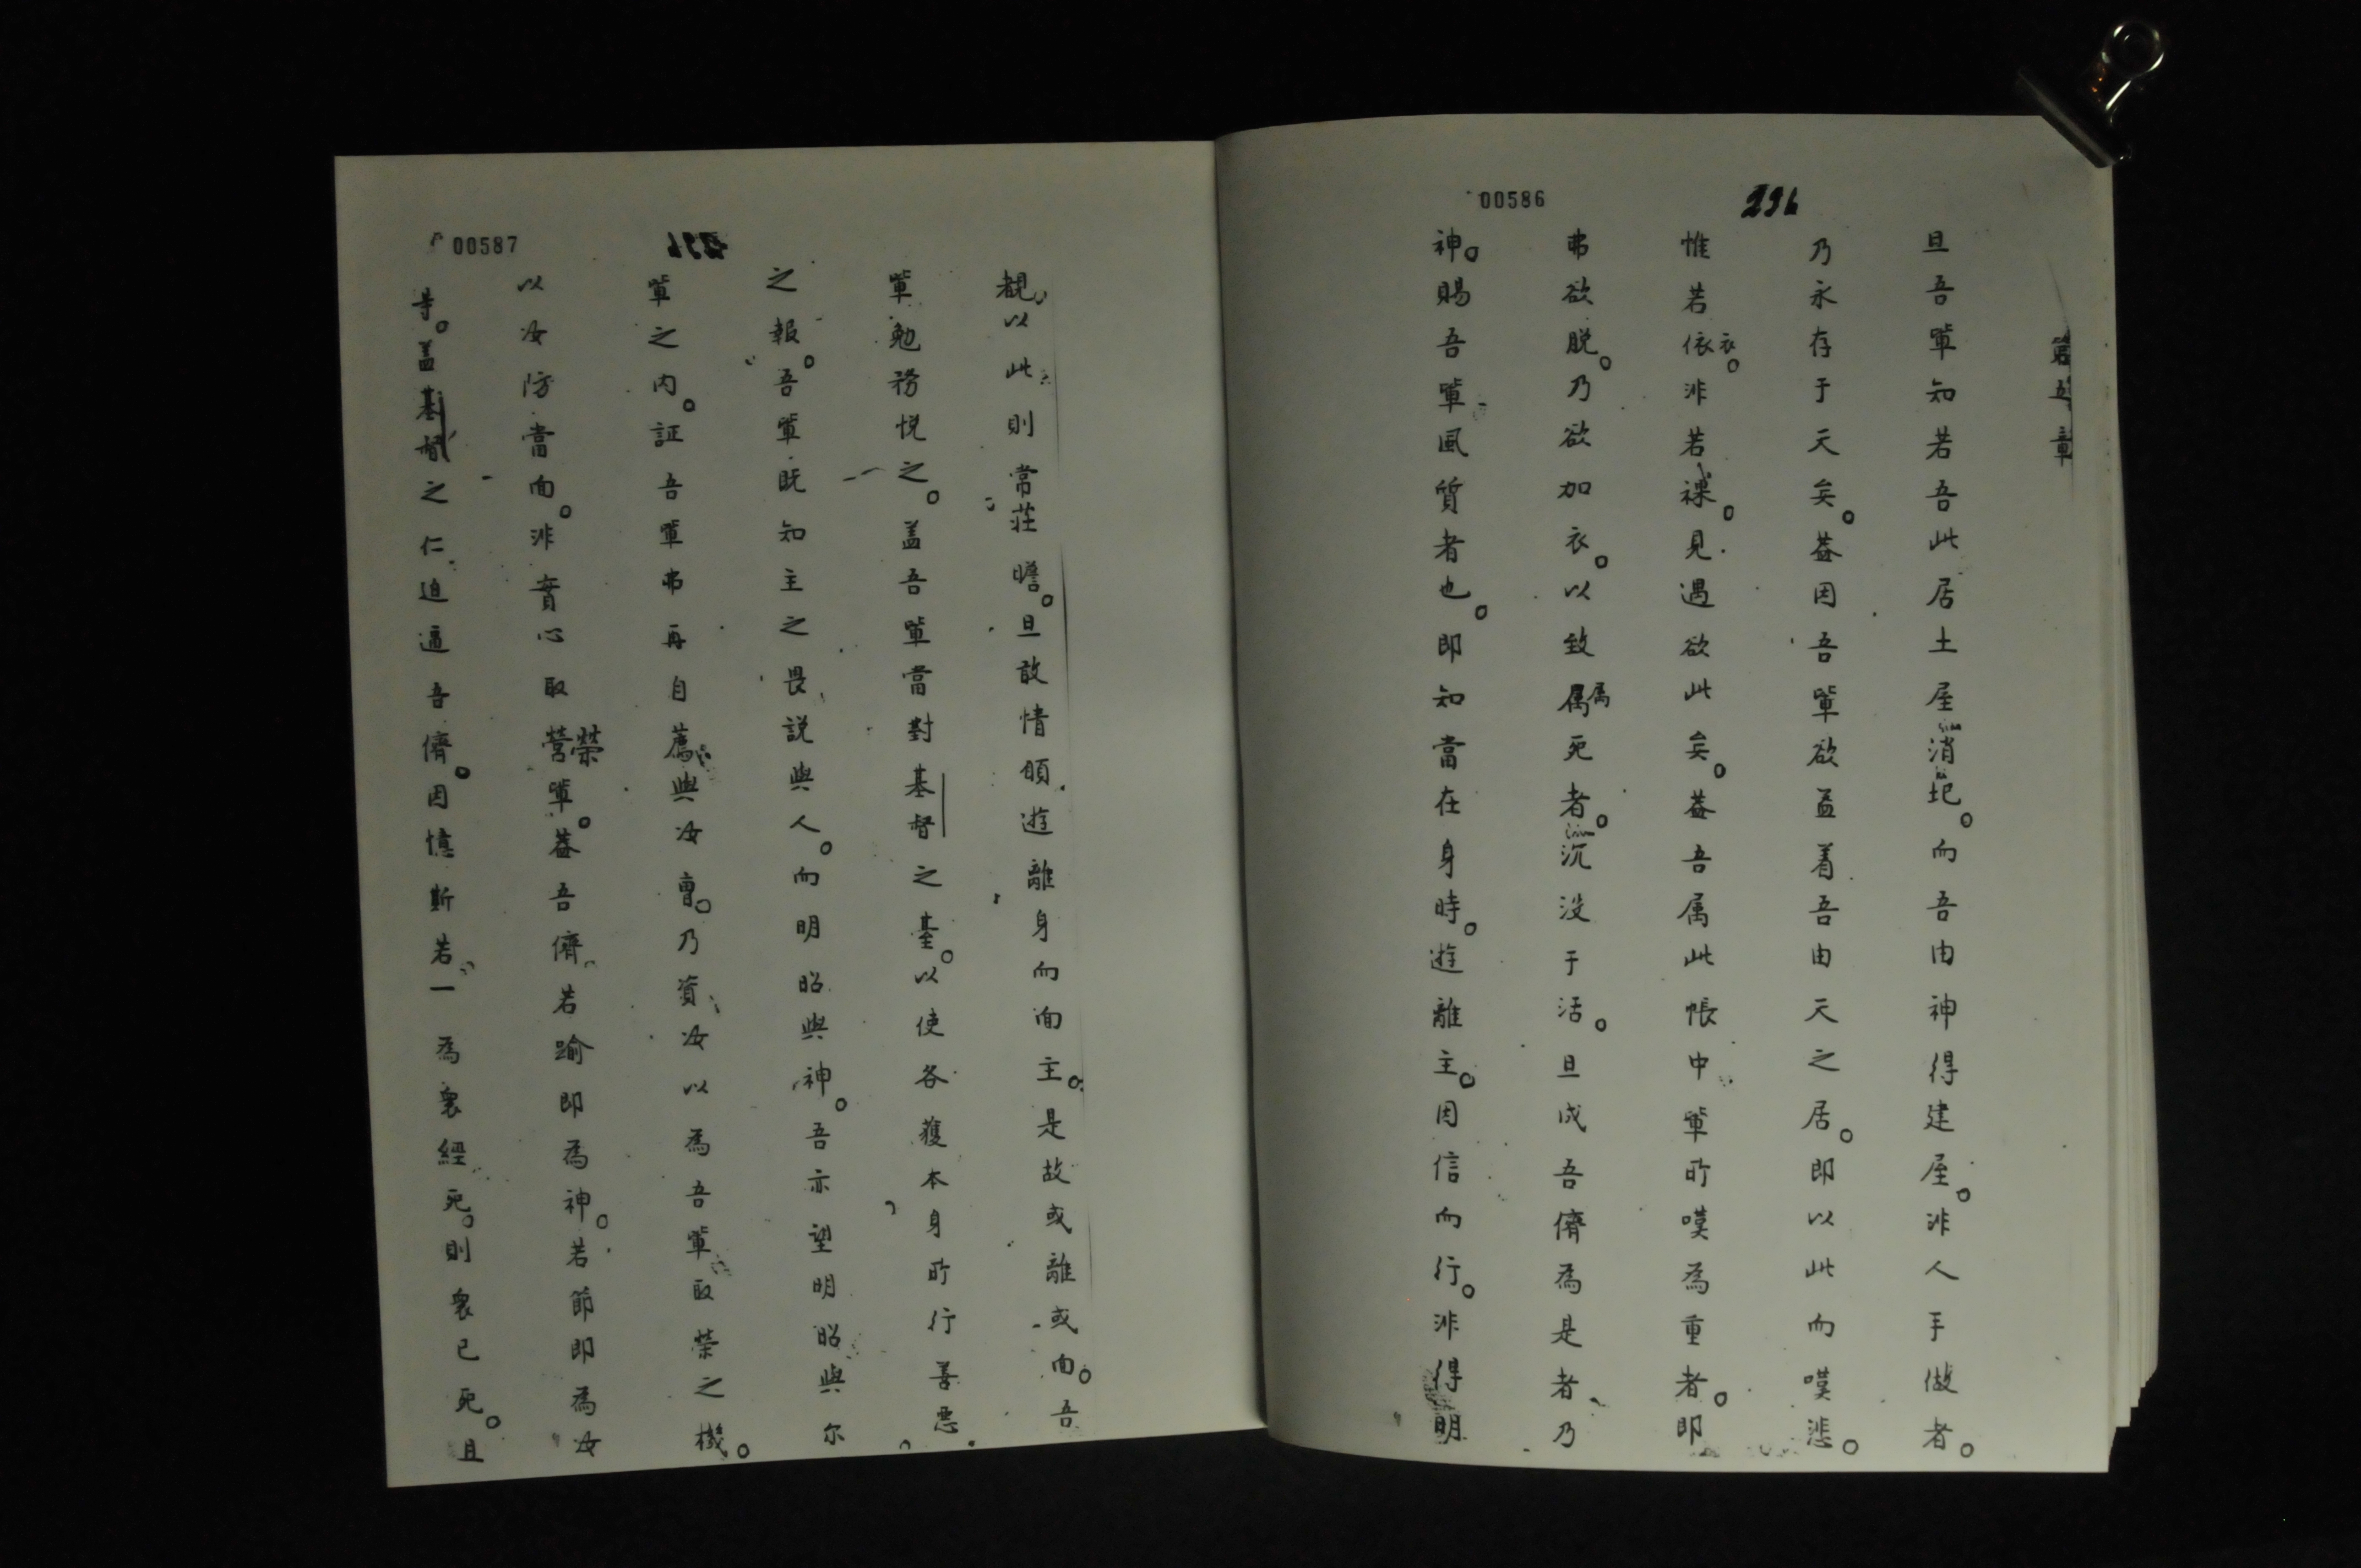 00586
296
第五章
旦吾軰知若吾此居土屋消圯。而吾由神得建屋。非人手做者。
乃永存于天矣。蓋因吾軰欲盖着吾由天之居。即以此而嘆悲。
惟若依衣。非若裸。見遇欲此矣。蓋吾属此帳中軰所嘆為重者。即
弗欲脱。乃欲加衣。以致属属死者。沉没于活。旦成吾儕為是者乃
神。賜吾軰風質者也。即知當在身時。遊離主。因信而行。非得明
00587
覩以此則常莊瞻。旦敢情頎遊離身而面主。是故或離或面。吾
軰勉務悦之。盖吾軰當對基督之臺。以使各獲本身所行善悪
之報。吾軰既知主之畏説與人。而明昭與神。吾亦望明昭與尔
軰之内。証吾軰弗再自薦與汝曹。乃資汝以為吾軰取荣之機。
以汝防當面。非實心取營榮軰。蓋吾儕若踰即為神。若節即為汝
等。盖基督之仁迫逼吾儕。因憶斯若一為衆經死。則衆已死。且